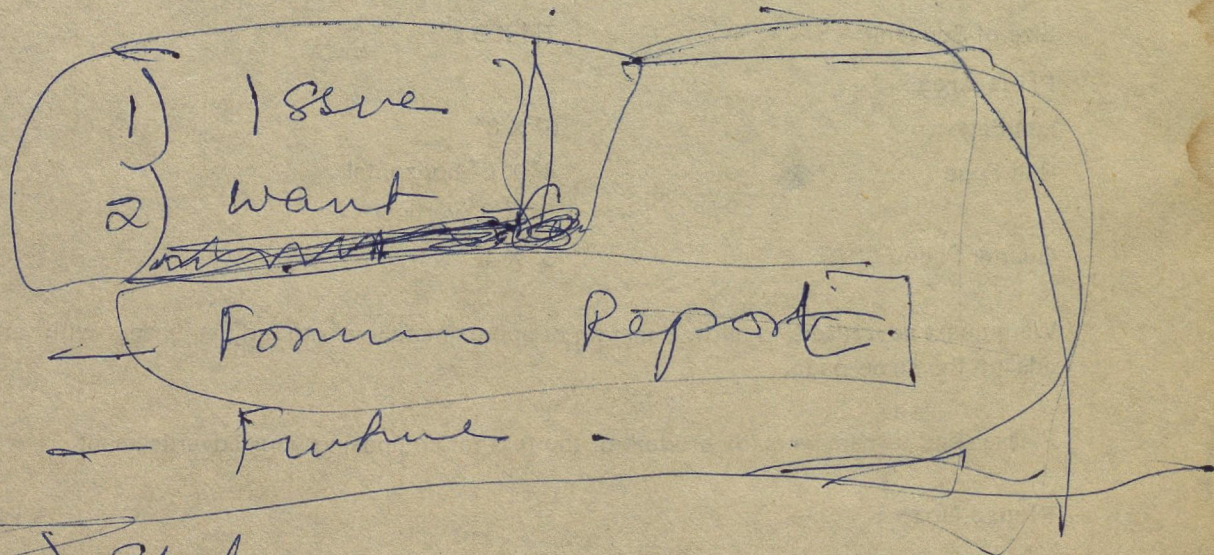 1) Issue
2) want
— Forums Report.
— Future